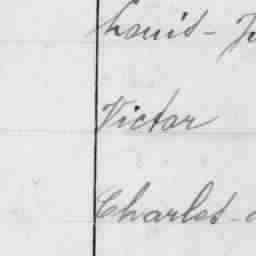 Louis-
Victor
Charles-